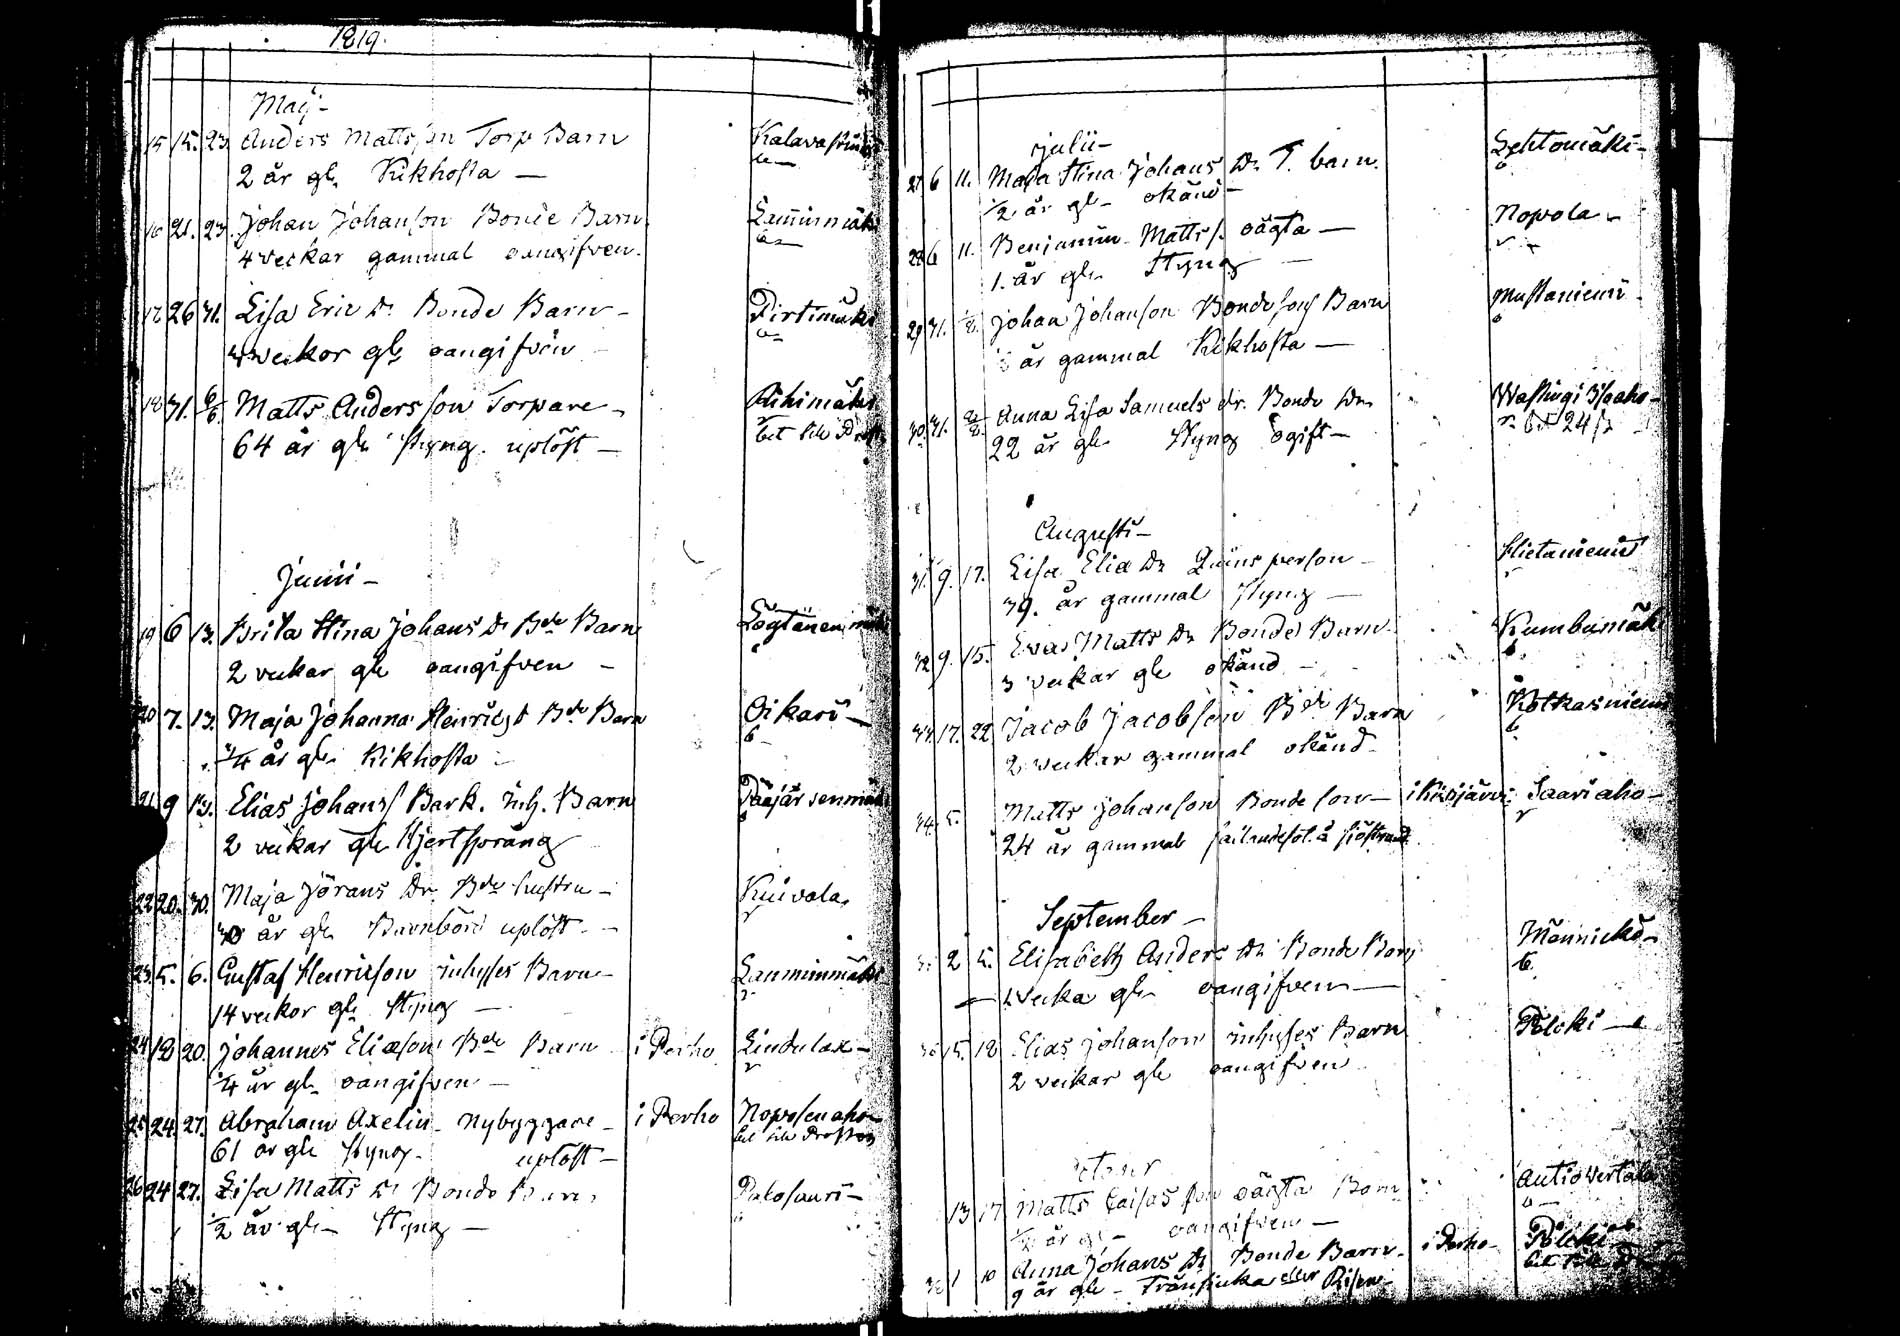 1819.
Maij-
15 15. 23. Anders Mattsson Torp Barn
2 år gl. Kikhosta —
16 21. 23. Johan Johanson Bonde Barn
4 veckar gammal oangifven.
17 26 31. Lisa Eric Dr Bonde Barn - Pirtimäki
3 veckor gl. oangifven
18 31. 6/6. Matts Anderson Torpare - Riihimäki
64 år gl. Styng. uplöst —
Junii -
19 6 13. Brita Stina Johans Dr Bde Barn
2 veckar gl oangifven -
20 7. 13. Maja Johanna Henrics Dr Bde Barn Oikari -
3/4 år gl. Kikhosta
21 9 13. Elias Johans Bark. inh. Barn
2 veckar gl Hjertsprång
22 20. 30. Maja Jörans Dr Bde hustru - Kuivala
30 år gl. Barnbörd uplöst. -
23 5. 6. Gustaf Henricson inhyses Barn - Lamminmäki
14 veckor gl. Styng —
24 18 20. Johannes Eliason Bde Barn i Perho Lindulax -
1/4 år gl. oangifven —
25 24. 27. Abraham Axelin - Nybyggare - i Perho Noposenaho -
61 år gl. Styng. uplöst —
26 24 27. Lisa Matts Dr Bonde Barn Palosaari -
1/2 år gl. Styng —
Julii -
27 6 11. Maja Stina Johans Dr T. barn. Lehtomäki -
1/2 år gl - okänd -
28 6 11. Benjamin Matts s. oägta — Nopola -
1. år gl. Styng —
29 31. 1/8. Johan Johanson Bondesons Barn Mustaniemi -
år gammal Kikhosta —
30. 31. Anna Lisa Samuels dr. Bonde Dr
22 år gl. Styng ogift -
Augusti -
31. 9. 17. Lisa Elia Dr Qvinsperson - Hietaniemi
39. år gammal Styng —
32 9. 15. Eva Matts Dr Bonde Barn Kumbumäki
3 veckar gl okänd -
33. 17. 22. Jacob Jacobson Bde Barn Kotkasniemi
2 veckar gammal okänd -
34. 5. Matts Johanson Bonde son - i Kivijärvi Saariaho -
24 år gammal
September -
35 2 5. Elisabeth Anders Dr Bonde Barn Männickö -
1 vecka gl. oangifven —
36 15. 18 Elias Johanson inhyses Barn Pölcki —
2 veckar gl oangifven
13 17 Matts Caisas son oägta Barn
1/2 år gl - oangifven —
1 10 Anna Johans Dr Bonde Barn - i Perho - Pölcki
9 år gl - Trånsiuka eller Risen -